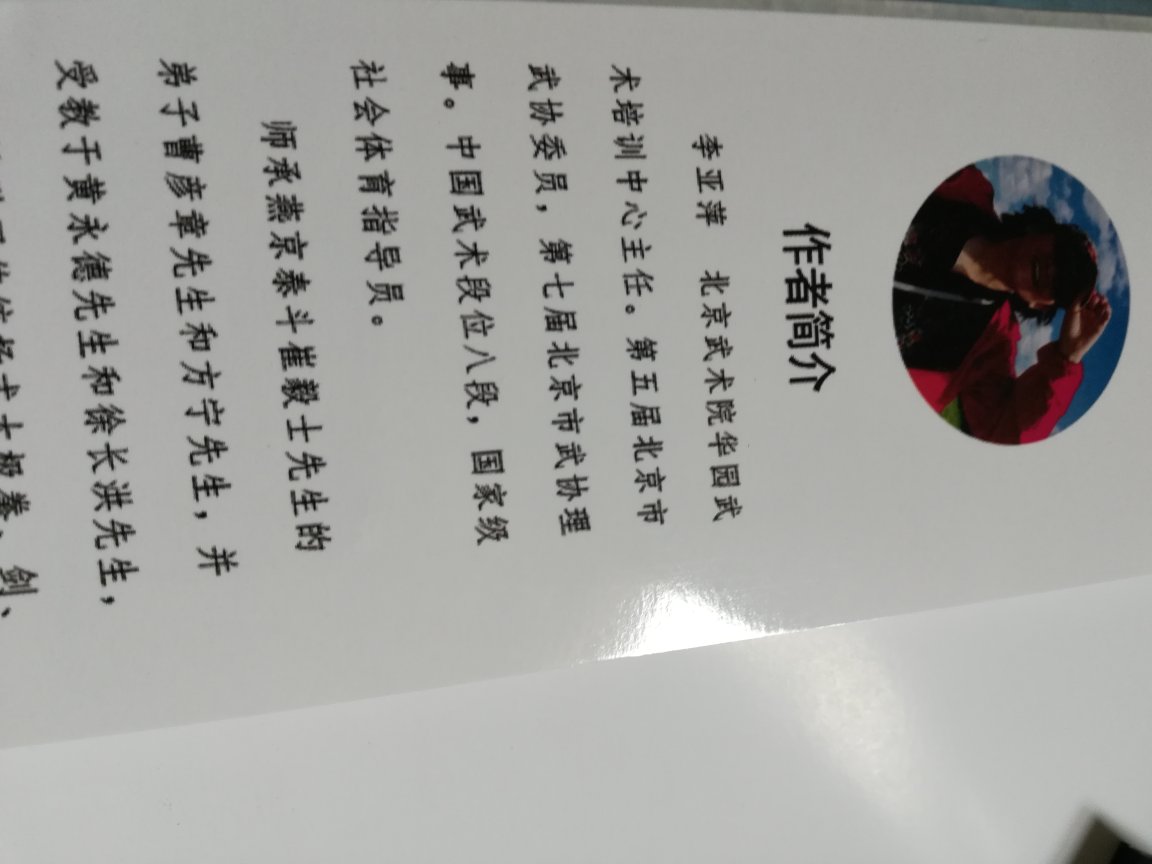 作者简介
李亚萍 北京武术院华园武
术培训中心主任。第五届北京市
武协委员，第七届北京市武协理
事。中国武术段位八段，国家级
社会体育指导员。
师承燕京泰斗崔毅士先生的
弟子曹彦章先生和方宁先生，并
受教于黄永德先生和徐长洪先生，
太极拳、剑、